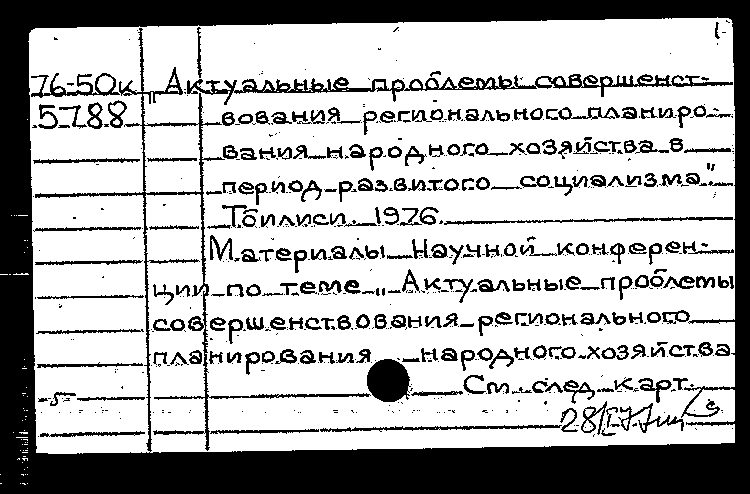 1
76-50к „Актуальные проблемы совершенст-
5788 вования регионального планиро-
вания народного хозяйства в
период развитого социализма".
Тбилиси. 1976.
Материалы научной конферен-
ции по теме „Актуальные проблемы
совершенствования регионального
планирования народного хозяйства
См. след. карт.
-5-